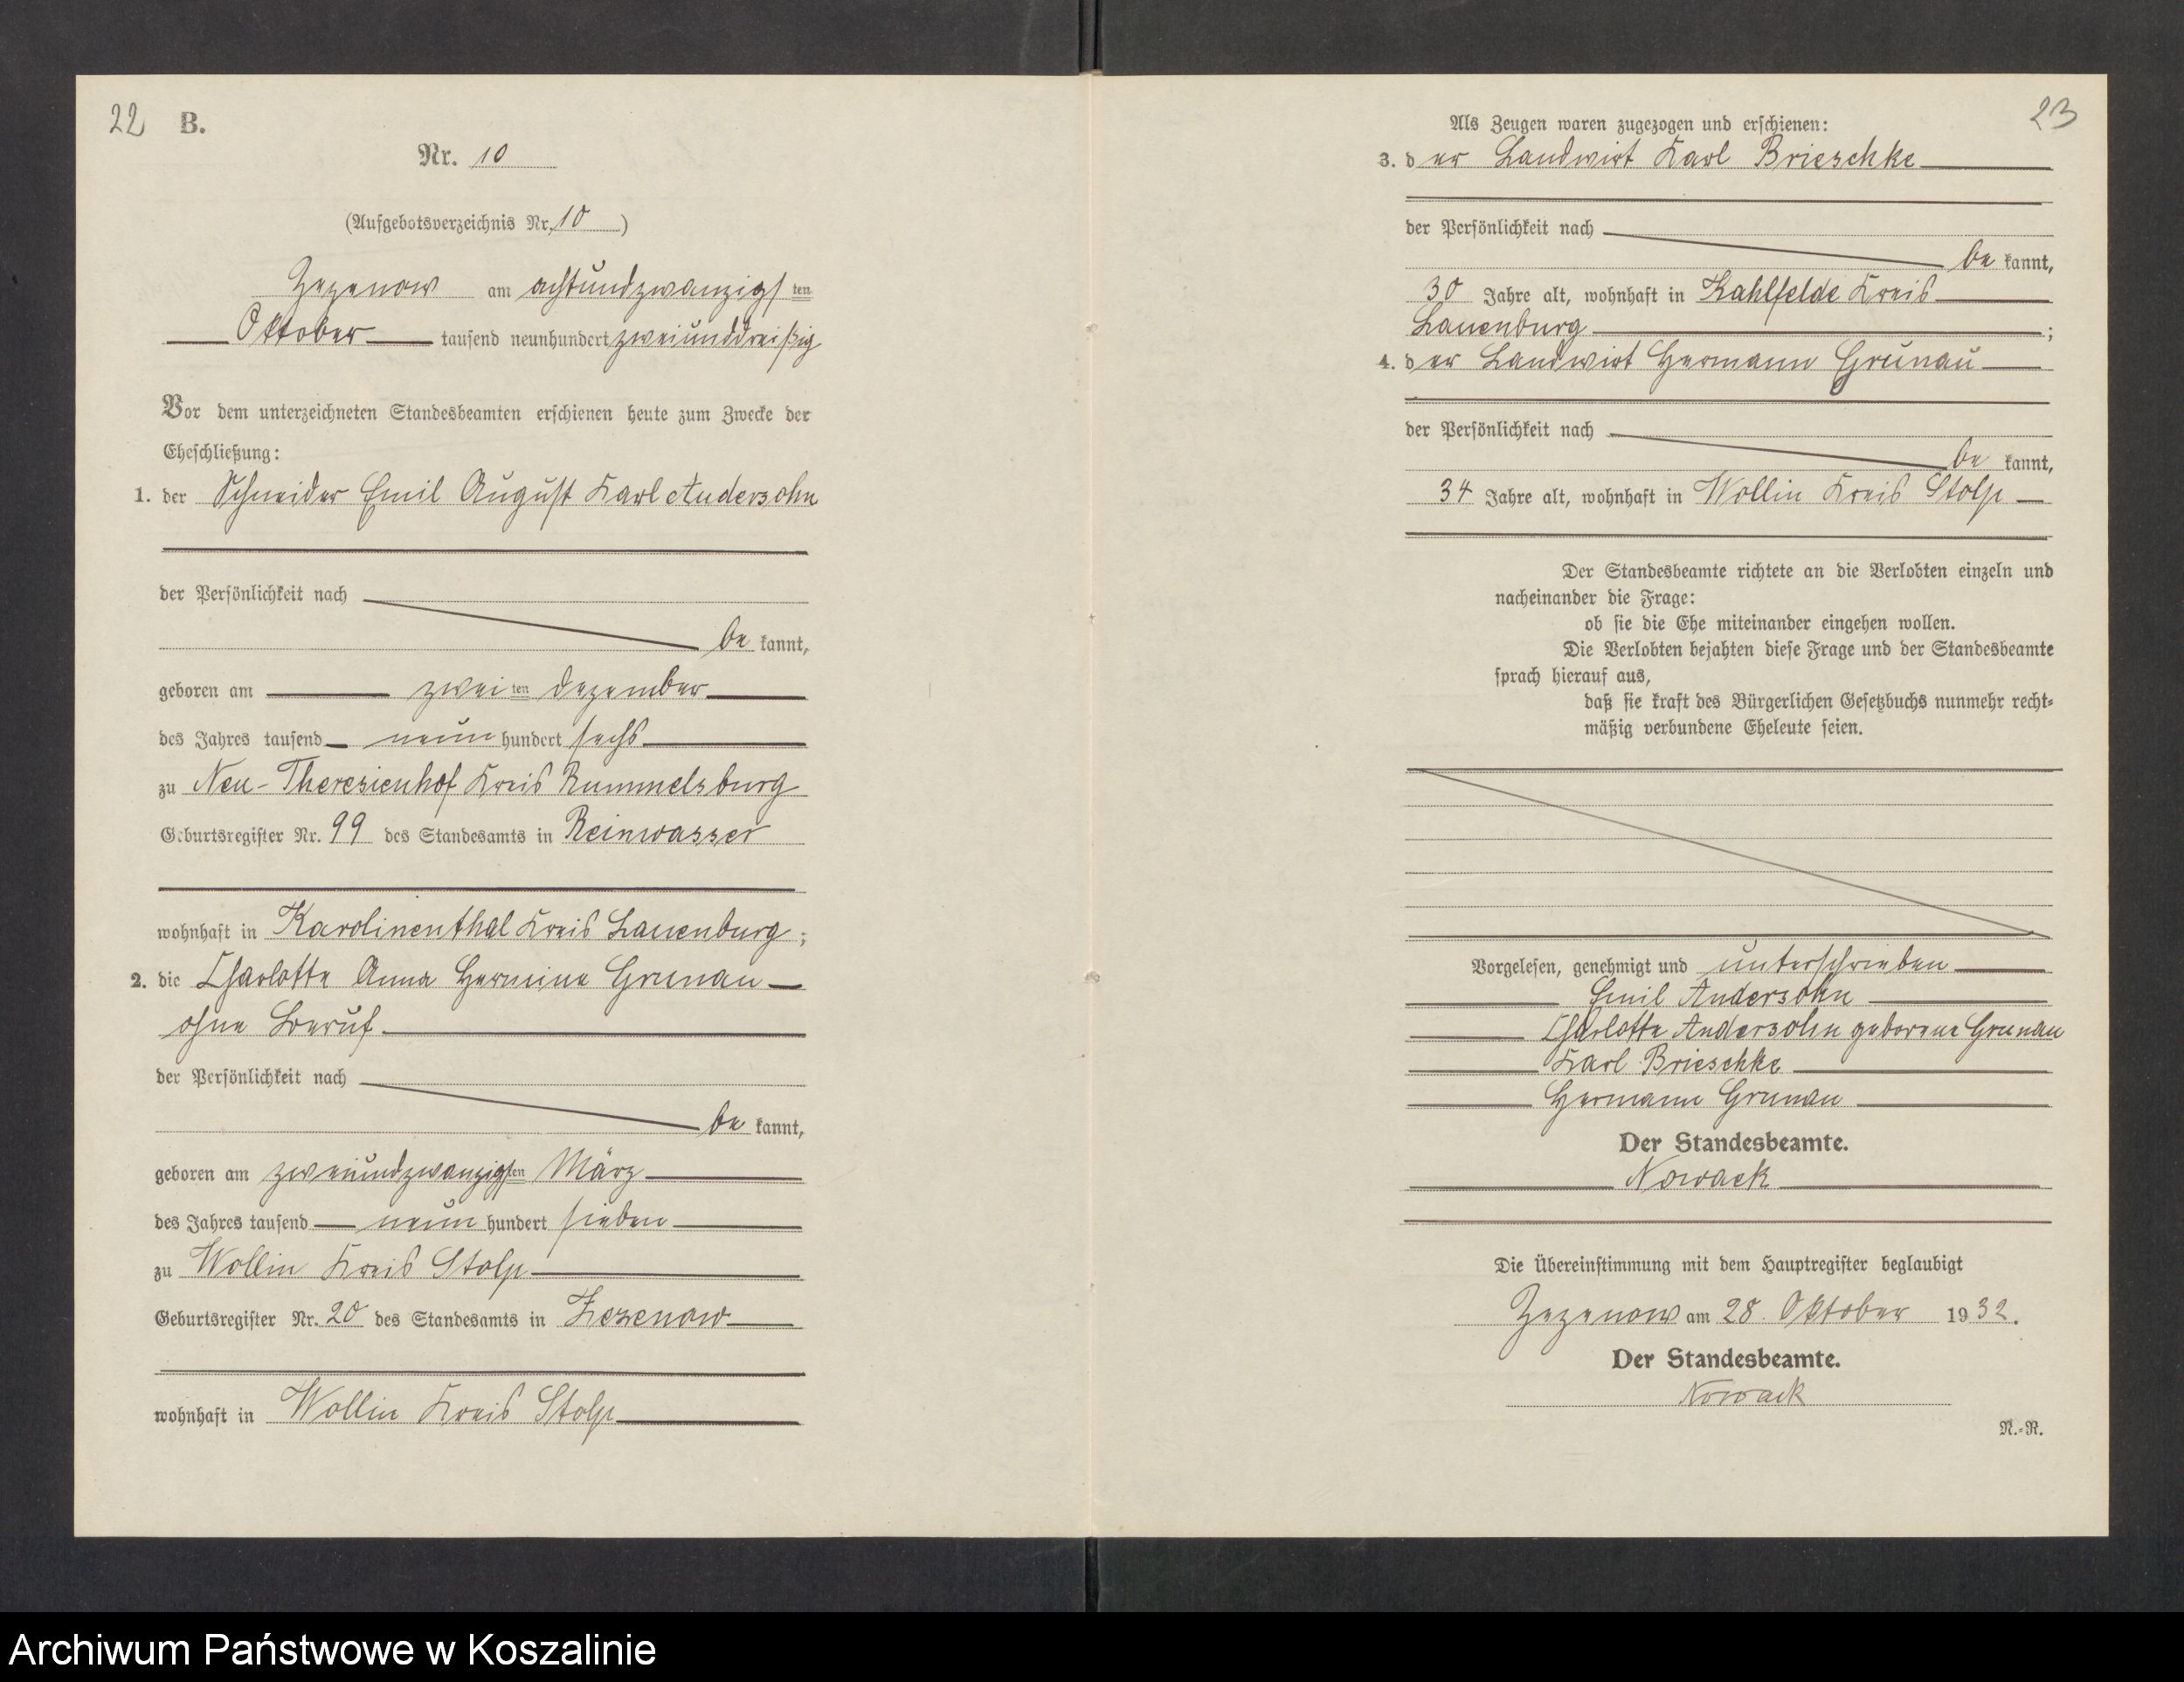 22 B.
Nr. 10
(Aufgebotsverzeichnis Nr. 10 )
Zezenow am achtundzwanzigsten
Oktober tausend neunhundert zweiunddreißig
Vor dem unterzeichneten Standesbeamten erschienen heute zum Zwecke der
Eheschließung:
1. der Schneider Emil August Karl Andersohn
der Persönlichkeit nach
be kannt,
geboren am zweiten Dezember
des Jahres tausend neun hundert sechs
zu Neu-Theresienhof Kreis Rummelsburg
Geburtsregister Nr. 99 des Standesamts in Reinwasser
wohnhaft in Karolinenthal Kreis Lauenburg;
2. die Charlotte Anna Hermine Grunau
ohne Beruf
der Persönlichkeit nach
be kannt,
geboren am zweiundzwanzigsten März
des Jahres tausend neun hundert sieben
zu Wollin Kreis Stolp
Geburtsregister Nr. 20 des Standesamts in Zezenow
wohnhaft in Wollin Kreis Stolp
23
Als Zeugen waren zugezogen und erschienen:
3. der Landwirt Karl Brieschke
der Persönlichkeit nach
be kannt,
30 Jahre alt, wohnhaft in Kahlfelde Kreis
Lauenburg;
4. der Landwirt Hermann Grunau
der Persönlichkeit nach
be kannt,
34 Jahre alt, wohnhaft in Wollin Kreis Stolp
Der Standesbeamte richtete an die Verlobten einzeln und
nacheinander die Frage:
ob sie die Ehe miteinander eingehen wollen.
Die Verlobten bejahten diese Frage und der Standesbeamte
sprach hierauf aus,
daß sie kraft des Bürgerlichen Gesetzbuchs nunmehr recht-
mäßig verbundene Eheleute seien.
Vorgelesen, genehmigt und unterschrieben
Emil Andersohn
Charlotte Andersohn geborene Grunau
Karl Brieschke
Hermann Grunau
Der Standesbeamte.
Nowack
Die Übereinstimmung mit dem Hauptregister beglaubigt
Zezenow am 28. Oktober 1932.
Der Standesbeamte.
Nowack
N.-R.
Archiwum Państwowe w Koszalinie